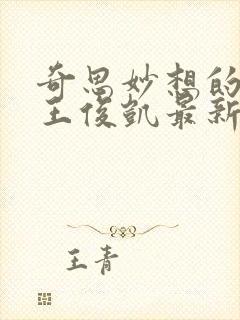 奇思妙想的
王俊凯最新
王青